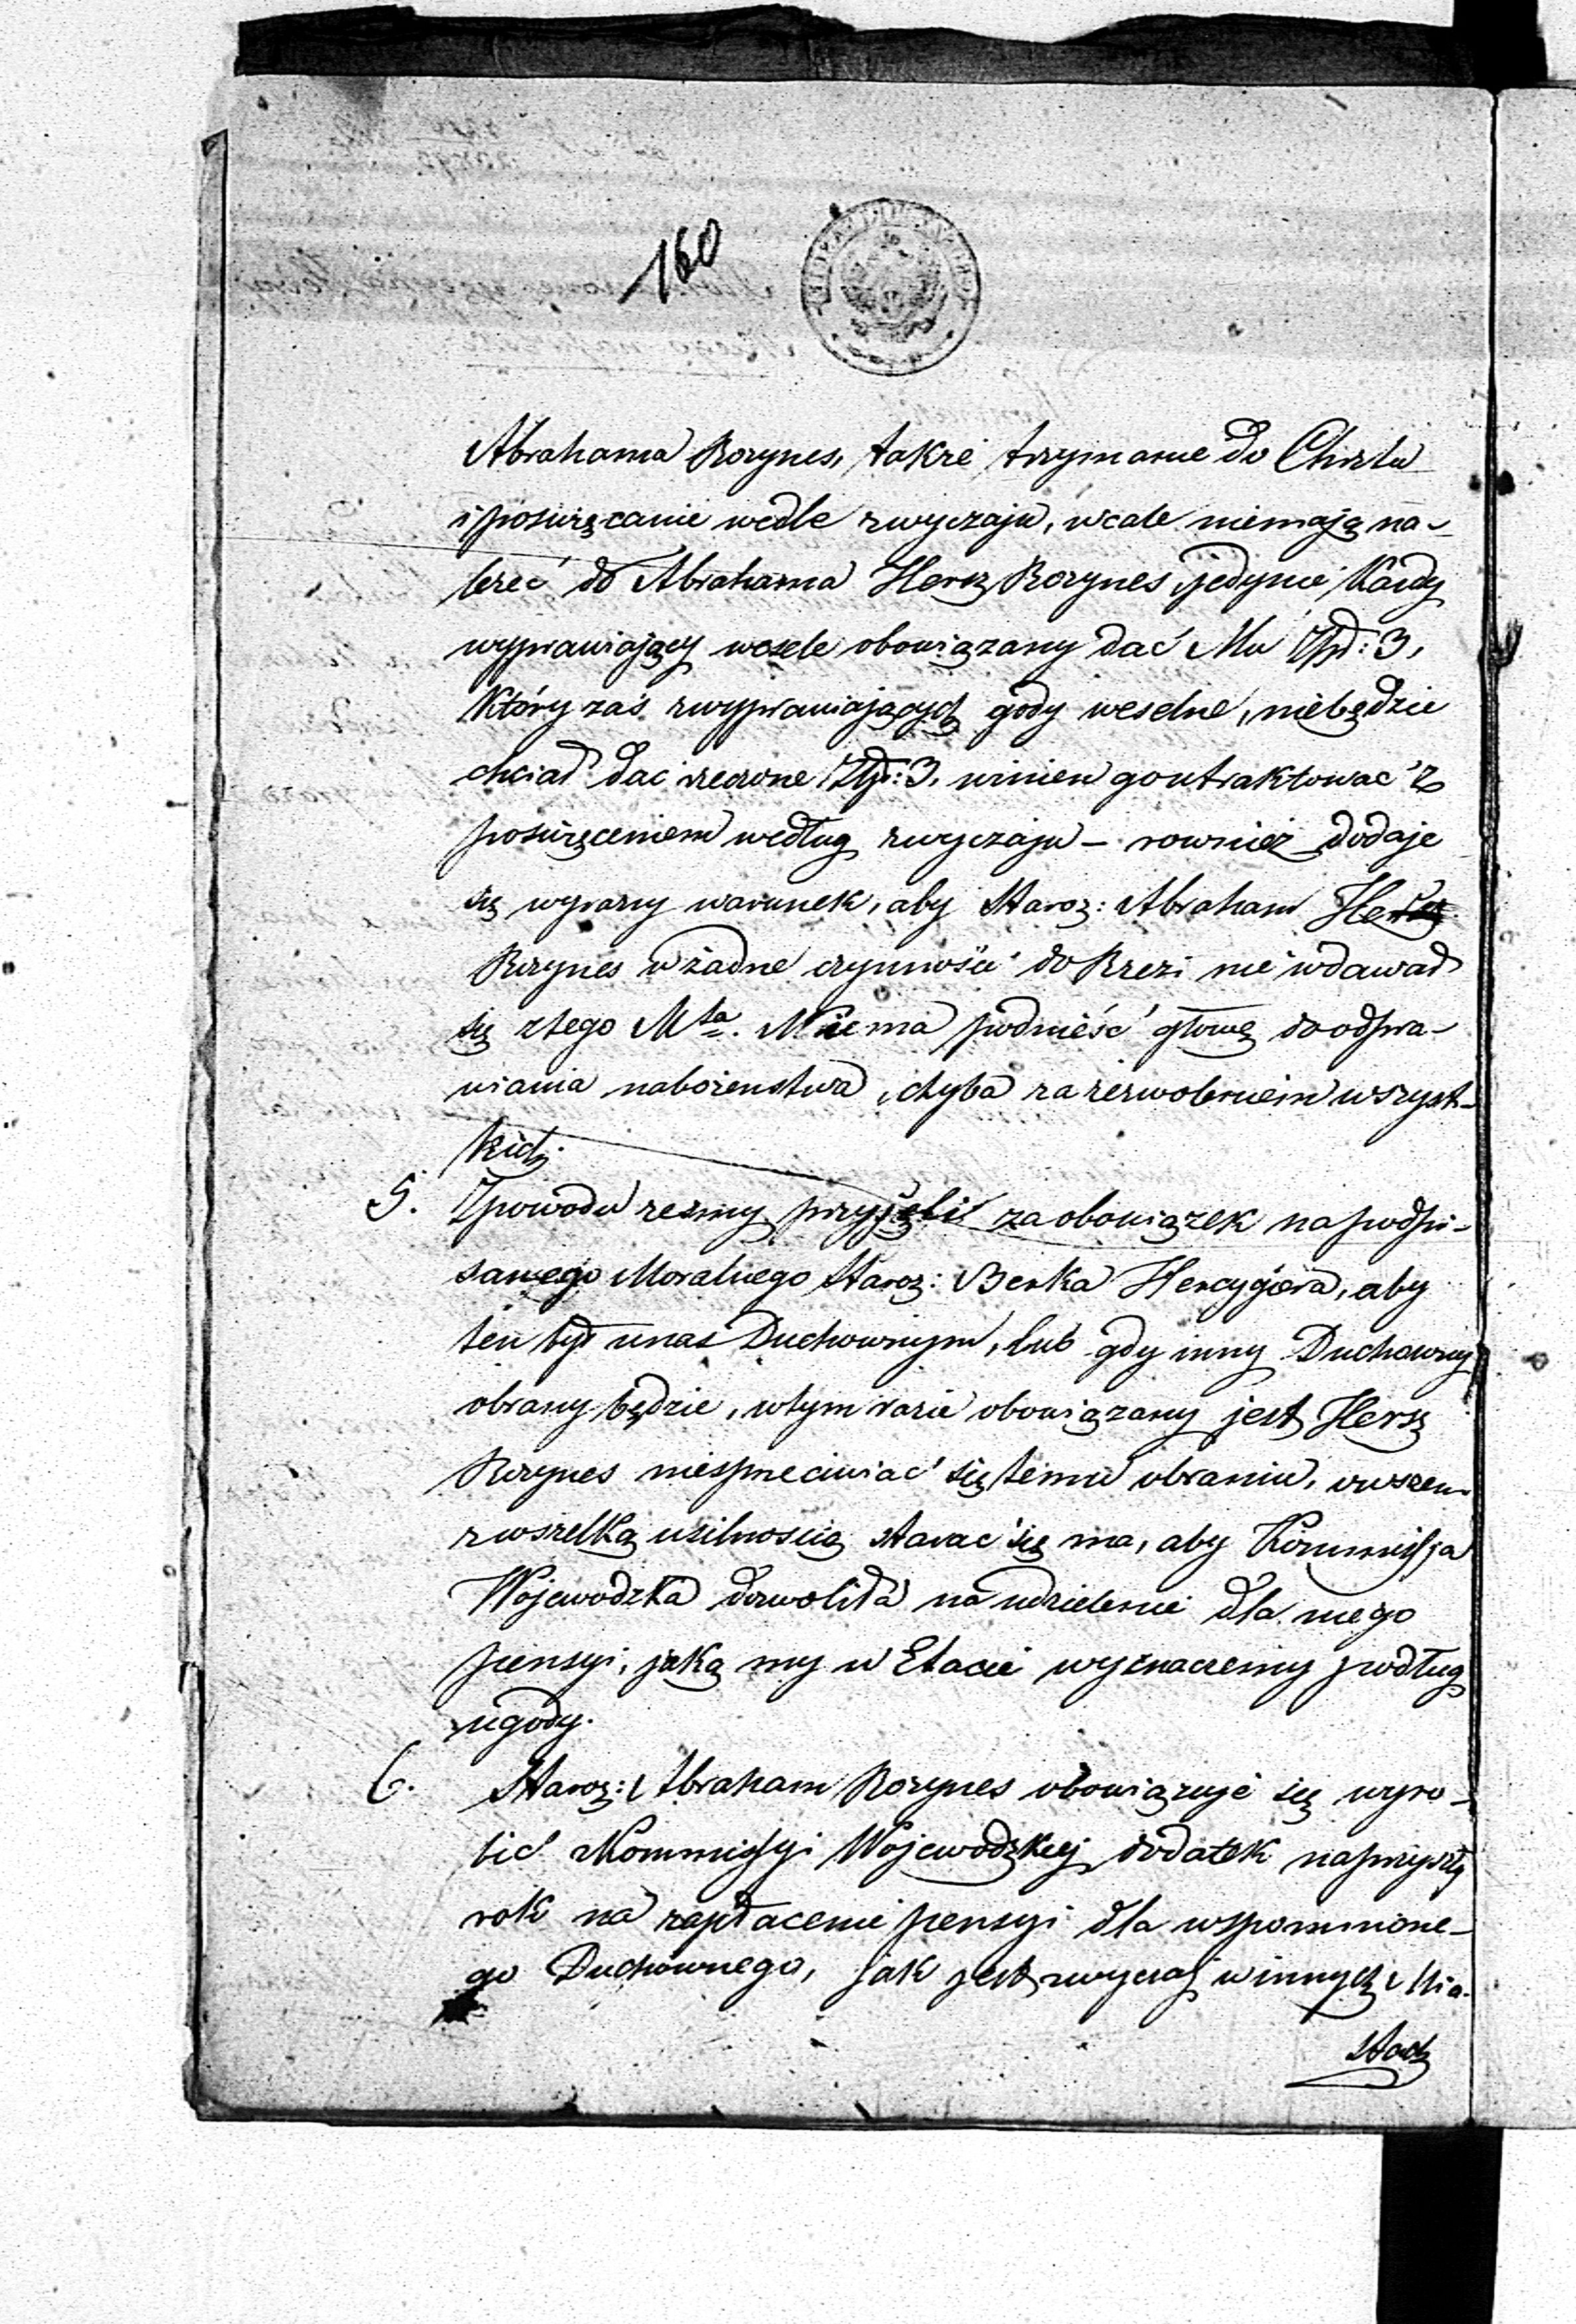 160
Abrahama Rozynes, takze trzymanie do Chrztu
i poswięcanie wedle zwyczaju, wcale niemają na-
lezeć do Abrahama Hersz Rozynes, jedynie Kazdy
wyprawiający wesele obowiązany dać Mu Złp: 3,
Który zaś zwyprawiających gody weselne, niebędzie
chciał dać rzeczone Złp: 3, winien go utraktować z
poswięceniem według zwyczaju – rownież dodaje
się wyrazny warunek, aby Staroz: Abraham Hersz
Rozynes w żadne czynności do Rzezi nie wdawał
się ztego Mta. Nie ma podnieść głowę do odpra-
wiania nabozenstwa, chyba za zezwoleniem wszyst-
kich.
5. Zpowodu ześmy przyjęli za obowiązek napodpi-
sanego Moralnego Staroz: Berka Hercygiera, aby
ten był unas Duchownym, lub gdy inny Duchowny
obrany będzie, wtym razie obowiązany jest Hersz
Rozynes niesprzeciwiać się temu obraniu, owszem
zwszelką usilnoscią starać się ma, aby Kommissja
Wojewodzka dozwoliła na udzielenie dla niego
pensyi, jaką my w Etacie wyznaczemy podług
ugody.
6. Staroz: Abraham Rozynes obowiązuje się wyro-
bić u Kommissyi Wojewodzkiej dodatek naprzyszły
rok na zapłacenie pensyi dla wspomnione-
go Duchownego, jak jest zwyczaj winnych Mia-
stach